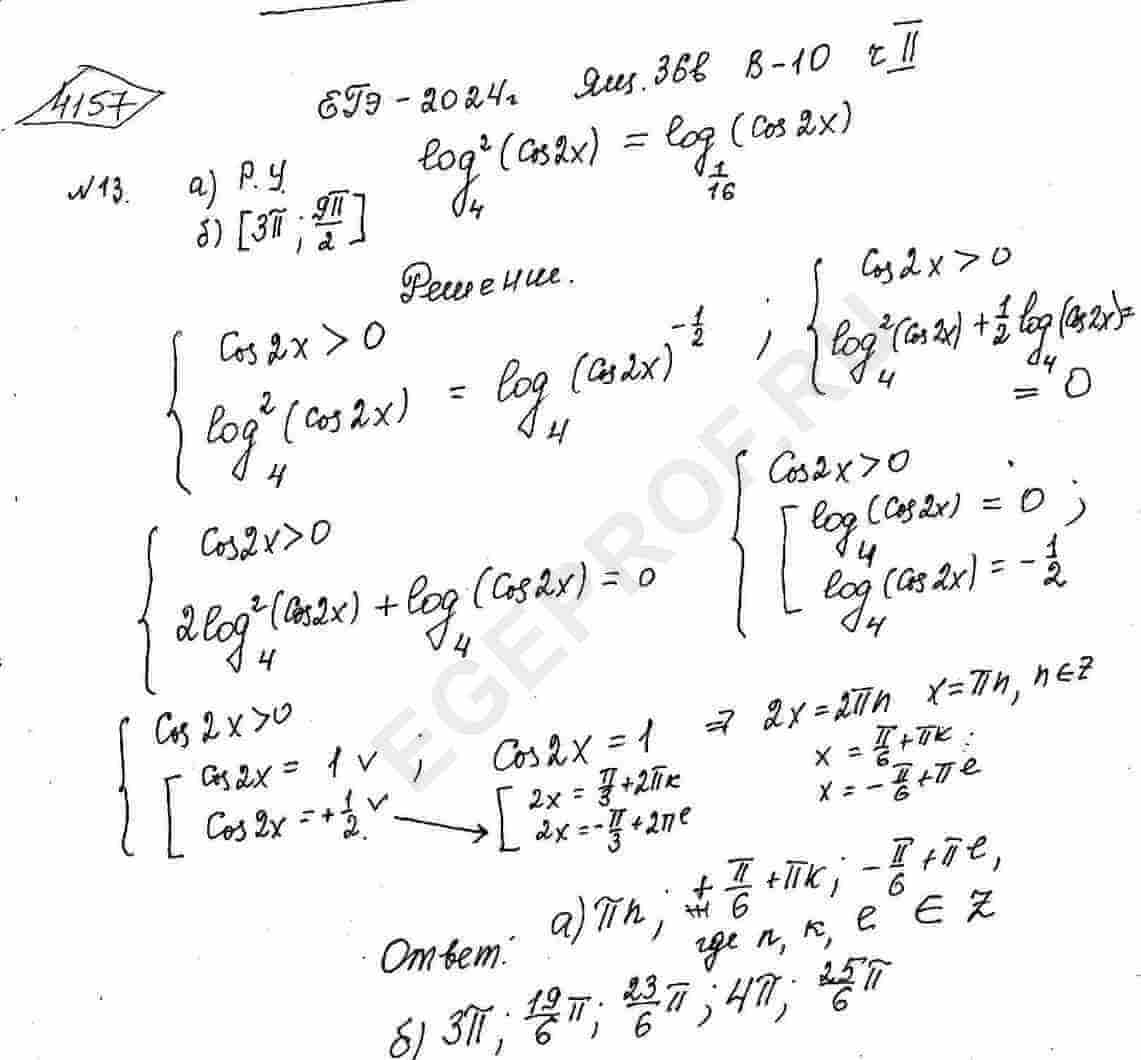 4157
ЕГЭ - 2024г Ящ. 36в В-10 ч II
№13. а) Р.У. log₄²(cos2x) = log_{1/16}(cos2x)
б) [3π; 9π/2]
Решение.
{ cos2x > 0
log₄²(cos2x) = log₄(cos2x)^{-1/2} ;
{ cos2x > 0
log₄²(cos2x) + 1/2 log₄(cos2x) =
= 0
{ cos2x > 0
2log₄²(cos2x) + log₄(cos2x) = 0
{ cos2x > 0
[ log₄(cos2x) = 0 ;
log₄(cos2x) = -1/2
{ cos2x > 0
[ cos2x = 1 v ;
cos2x = +1/2 v
cos2x = 1 ⇒ 2x = 2πn x = πn, n∈Z
[ 2x = π/3 + 2πк x = π/6 + πк;
2x = -π/3 + 2πe x = -π/6 + πe
Ответ: а) πn; + π/6 + πк; -π/6 + πe,
где n, к, e ∈ Z
б) 3π; 19/6 π; 23/6 π; 4π; 25/6 π
EGEPROF.RU